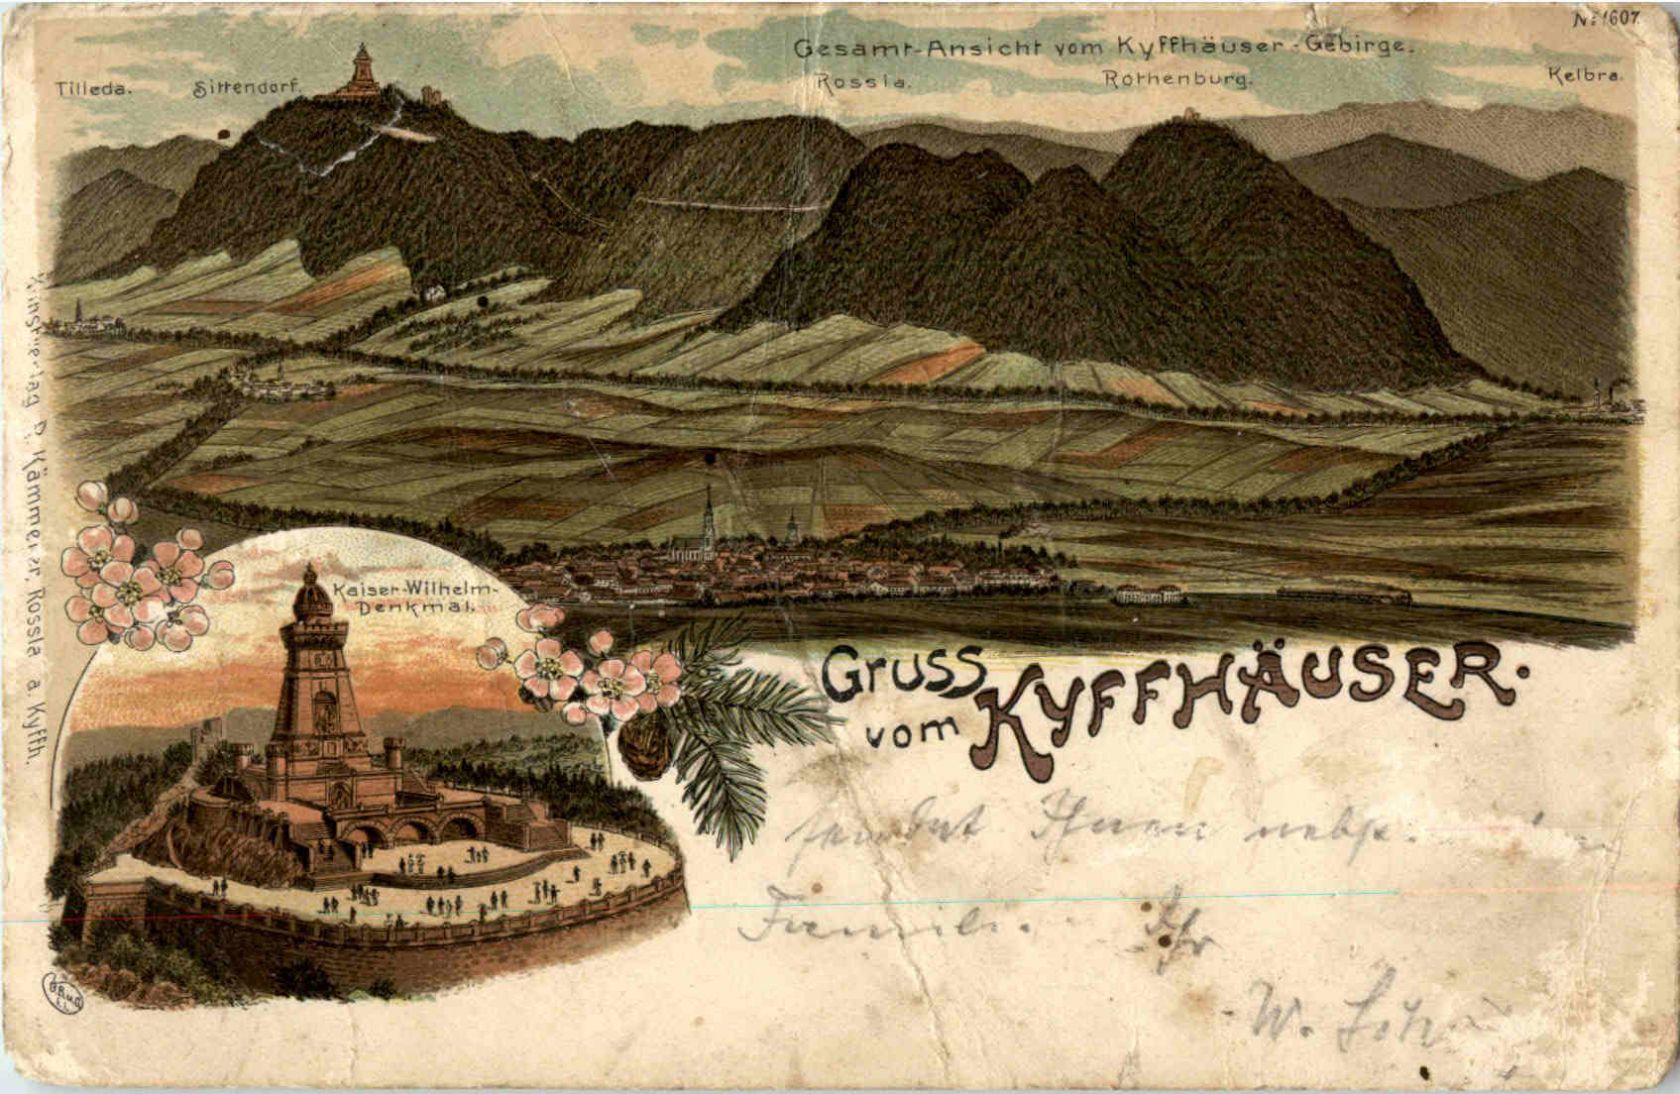 Nº 1607
Gesamt-Ansicht vom Kyffhäuser-Gebirge.
Tilleda. Sittendorf. Rossla. Rothenburg. Kelbra.
Kunstverlag D. Kämmerer, Rossla a. Kyffh.
Kaiser-Wilhelm-
Denkmal.
Gruss
vom KYFFHÄUSER.
sendet Ihnen nebst
Famili
Ihr
W.